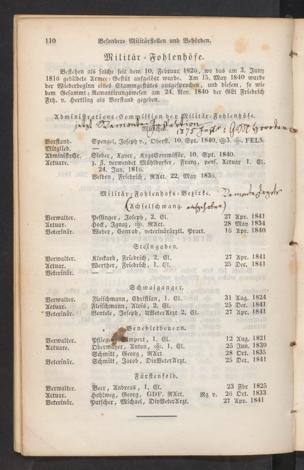 110 Besondere Militärstellen und Behörden.
Militär-Fohlenhöfe.
Bestehen als solche seit dem 10. Februar 1826, wo das am 3. Juny
1816 gebildete Armee-Gestüt aufgelöst wurde. Am 15. May 1840 wurde
der Wiederbeginn eines Stammgestütes ausgesprochen, und dieses, so wie
dem Gesammt-Remontirungswesen am 24. Nov. 1840 der GLt Friedrich
Frh. v. Hertling als Vorstand gegeben.
Administrations-Commission der Militär-Fohlenhöfe.
jetzt Remonte Inspektion
München.
Vorstand. Spengel, Joseph v., Oberst, 10. Spt. 1840,
Mitglied.
Administrefte. Sieber, Xaver, 10. Spt. 1840.
Actuare. z. Z. verwendet Mühlbayer, Franz, pens. Actuar 1. Cl.
24. Jun. 1816.
Bethen, Friedrich, RAct. 22. May 1836.
Militär-Fohlenhofs-Bezirke. Remonte Depots
(Achselschwang. aufgehoben)
Verwalter. Pessinger, Joseph, 2. Cl. 27 Apr. 1841
Actuar. Höck, Ignaz, RAct. 28 May 1834
Veterinär. Weber, Conrad, veterinärztl. Pract. 16 Apr. 1840
Steingaden.
Verwalter. Kleekard, Friedrich, 2. Cl. 27 Apr. 1841
Actuar. Werther, Friedrich, 1. Cl. 25 Dec. 1841
Veterinär.
Schwaiganger.
Verwalter. Fleischmann, Christian, 1. Cl. 31 Aug. 1824
Actuar. Fleischmann, Alois, 2. Cl. 25 Dec. 1841
Veterinär. Gentele, Joseph, UVeterArzt 2. Cl. 27 Apr. 1841
Benedictbeuern.
Verwalter. 1. Cl. 12 Aug. 1821
Actuar. Obermayer, Anton, 1. Cl. 25 Jun. 1839
Schmitt, Georg, RAct. 28 Oct. 1835
Veterinär. Schmitt, Jacob, DivVeterArzt. 25 Dec. 1841
Fürstenfeld.
Verwalter. Baer, Andreas, 1. Cl. 23 Fbr 1825
Actuar. Hohlweg, Georg, GDF. RAct. Rg v. 26 Oct. 1833
Veterinär. Putscher, Michael, DivVeterArzt. 27 Apr. 1841